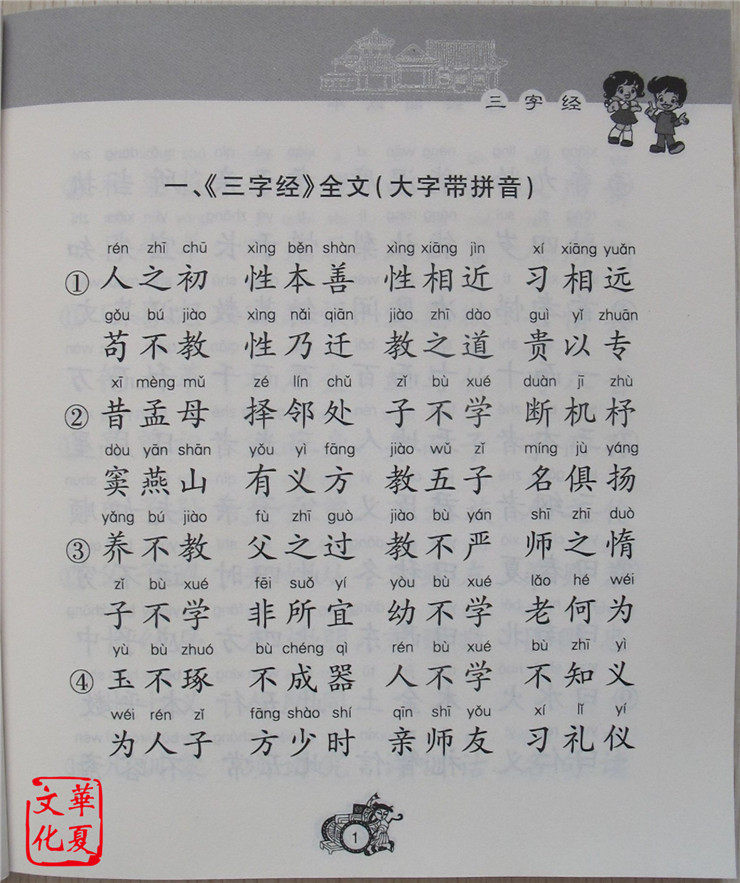 三字经
一、《三字经》全文(大字带拼音)
rén zhī chū xìng běn shàn xìng xiāng jìn xí xiāng yuǎn
① 人之初 性本善 性相近 习相远
gǒu bú jiào xìng nǎi qiān jiào zhī dào guì yǐ zhuān
苟不教 性乃迁 教之道 贵以专
xī mèng mǔ zé lín chǔ zǐ bù xué duàn jī zhù
② 昔孟母 择邻处 子不学 断机杼
dòu yān shān yǒu yì fāng jiào wǔ zǐ míng jù yáng
窦燕山 有义方 教五子 名俱扬
yǎng bú jiào fù zhī guò jiào bù yán shī zhī duò
③ 养不教 父之过 教不严 师之惰
zǐ bù xué fēi suǒ yí yòu bù xué lǎo hé wéi
子不学 非所宜 幼不学 老何为
yù bù zhuó bù chéng qì rén bù xué bù zhī yì
④ 玉不琢 不成器 人不学 不知义
wéi rén zǐ fāng shào shí qīn shī yǒu xí lǐ yí
为人子 方少时 亲师友 习礼仪
華夏文化
1